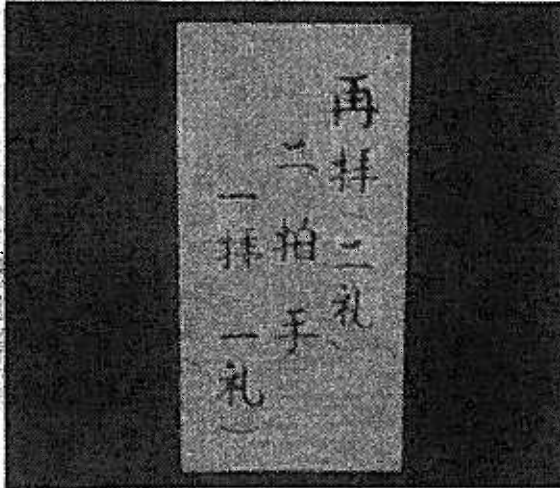 再拝（二礼）
二拍手
一拝（一礼）